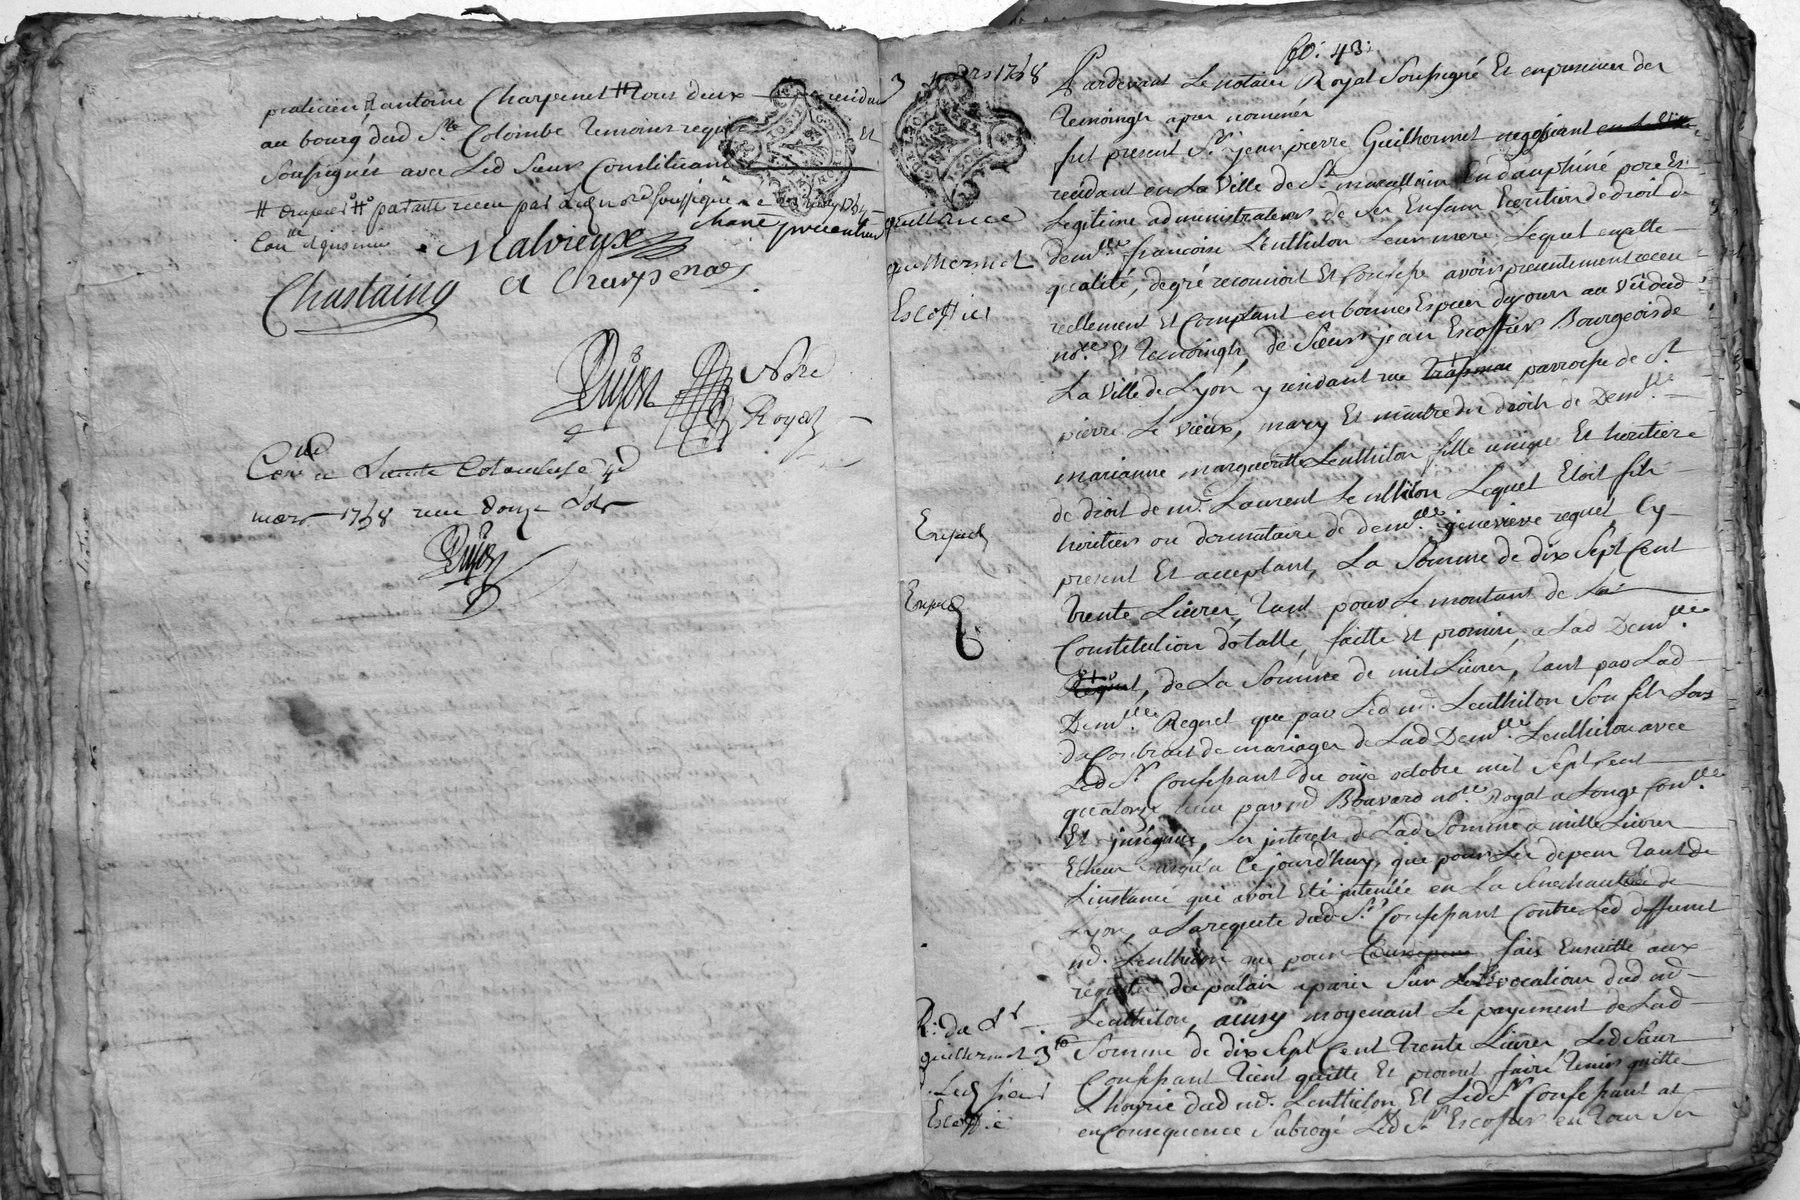 praticien, Et antoine Charpenet # tous deux residant
au bourg dud Ste Colombe temoins requis Et
Soussignés avec Led Sieur Constituant
Malvieux
Chastaing et Charpenay
Dujon Nore
Royal
Conlle a Sainte Colombe le
mars 1738 receu douze sols
Dujon
fo: 43:
3 mars 1738
quittance
guilhermet
Escoffier
Expedé
Expedé
R: da Sr
guilhermet 3to
Led sieur
Escoffie
Pardevant Le notaire Royal Soussigné Et en presence des
temoingts apres nommés
fut present Sr. jean pierre Guilhermet negotiant
residant en La Ville de St. marcellain En dauphiné pere Et
Legitime administrateur de Ses Enfans heritiers de droit de
demlle. francoise Lenthilon Leur mere Lequel en cette
qualité, de gré reconnoit Et Confesse avoir presentement receu
reellement Et Comptant en bonnes Especes du cours au Vû dud
nore. Et temoingts, de Sieur jean Escoffier Bourgeois de
La Ville de Lyon y residant rue parroisse de St
pierre Le Vieux, mary Et maitre des droits de Demlle.
marianne margueritte Lenthilon fille unique Et heritiere
de droit de me. Laurent Lenthilon Lequel Etoit fils
heritier ou donnataire de demlle. genevieve reguet Cy
present Et acceptant, La Somme de dix Sept Cent
trente Livres, tant pour Le montant de La
Constitution dotalle, faitte Et promise, a Lad Demlle.
de La Somme de mil Livres, tant par Lad
Demlle. Reguet que par Led me. Lenthilon Son fils Lors
du Contract de mariage de Lad Demlle. Lenthilon avec
Led Sr. Confessant du onze octobre mil Sept Cent
quatorze receu par me Bouvard nore. Royal a Longe Conlle.
Et insignué, Les interets de Lad Somme a mille Livres
Echeus jusqu'a Ce jourd'huy, que pour Les depens tant de
L'instance qui avoit Eté intentée en La Senechaussée de
Lyon, a La requete dud Sr. Confessant Contre Led deffunct
me. Lenthilon que pour fais Ensuitte aux
requetes du palais a paris Sur L'Evocation dud me
Lenthilon, ainsy moyenant Le payement de Lad
Somme de dix Sept Cent trente Livres Led Sieur
Confessant tient quitte Et promet faire tenir quitte
L'hoyrie dud me. Lenthilon Et Led Sr Confessant at
en Consequence Subrogé Led Sr Escoffier en tous Ses